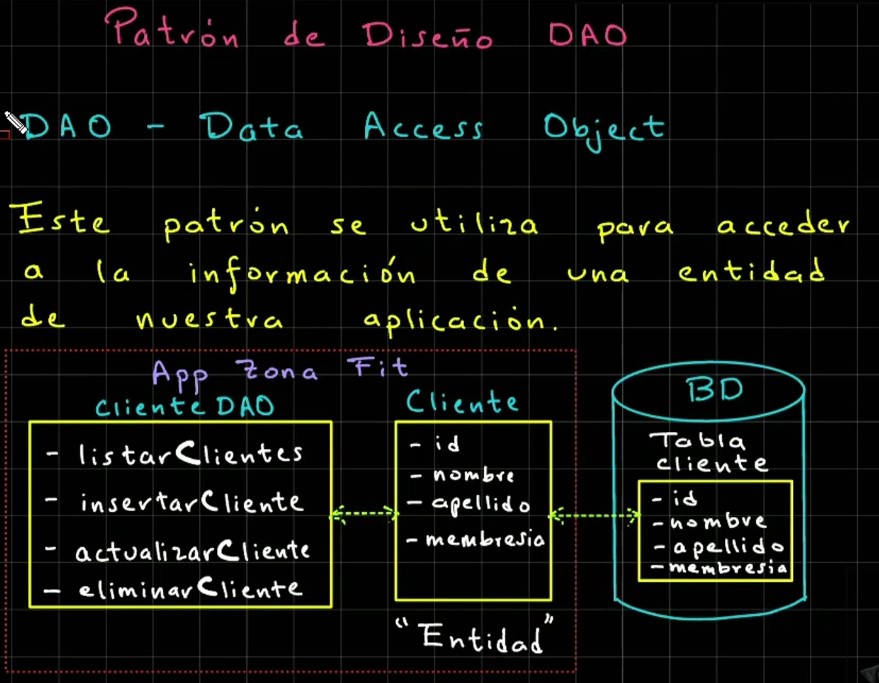 Patrón de Diseño DAO
DAO - Data Access Object
Este patrón se utiliza para acceder
a la información de una entidad
de nuestra aplicación.
App Zona Fit
Cliente DAO
- listarClientes
- insertarCliente
- actualizarCliente
- eliminarCliente
Cliente
- id
- nombre
- apellido
- membresia
"Entidad"
BD
Tabla
cliente
- id
- nombre
- apellido
- membresia